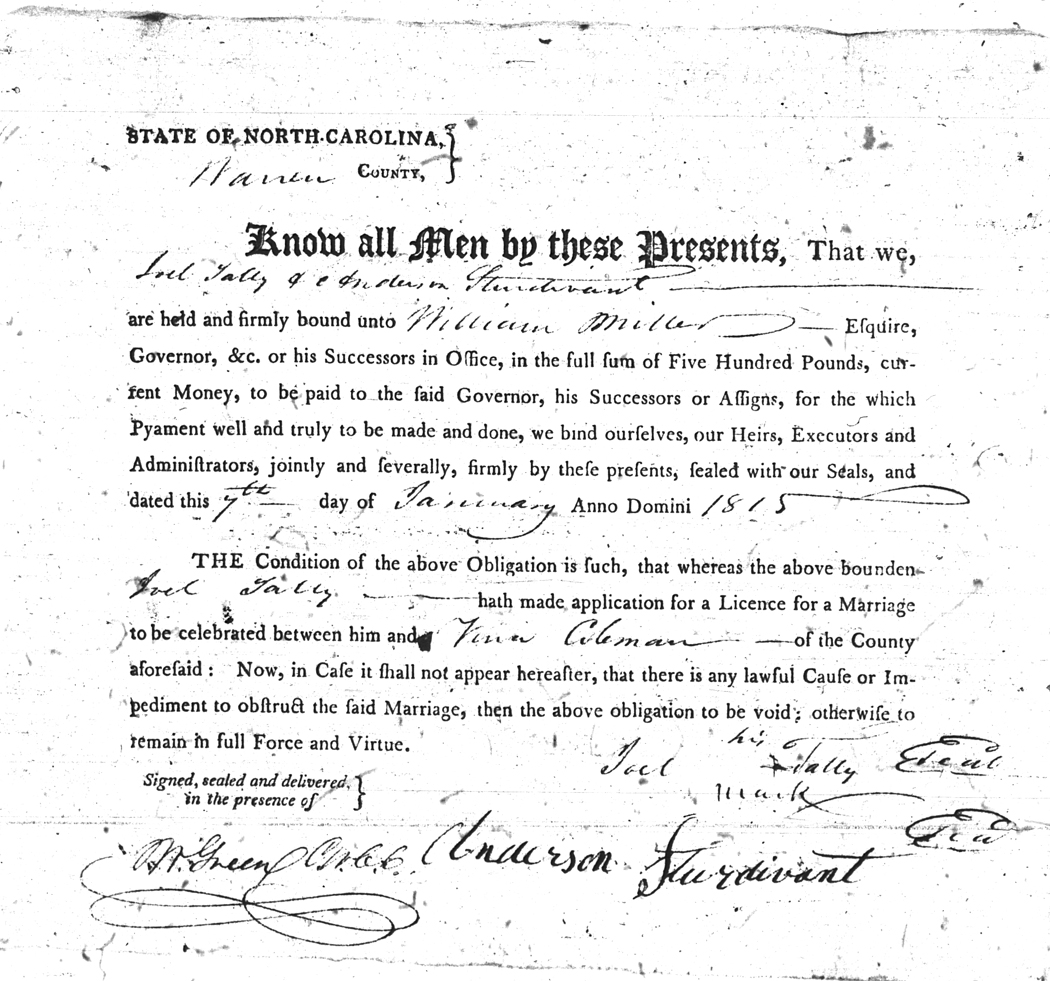 STATE OF NORTH-CAROLINA,
Warren COUNTY,
Know all Men by these Presents, That we,
Joel Tally & Anderson Sturdivant
are held and firmly bound unto William Miller Eſquire,
Governor, &c. or his Succeſſors in Office, in the full ſum of Five Hundred Pounds, cur-
rent Money, to be paid to the ſaid Governor, his Succeſſors or Aſſigns, for the which
Pyament well and truly to be made and done, we bind ourſelves, our Heirs, Executors and
Adminiſtrators, jointly and ſeverally, firmly by theſe preſents, ſealed with our Seals, and
dated this 7th day of January Anno Domini 1815
THE Condition of the above Obligation is ſuch, that whereas the above bounden
Joel Tally hath made application for a Licence for a Marriage
to be celebrated between him and Coleman of the County
aforeſaid: Now, in Caſe it ſhall not appear hereafter, that there is any lawful Cauſe or Im-
pediment to obſtruct the ſaid Marriage, then the above obligation to be void; otherwiſe to
remain in full Force and Virtue.
his
Joel Tally Seal
mark
Signed, sealed and delivered,
in the presence of
Green Anderson Sturdivant Seal